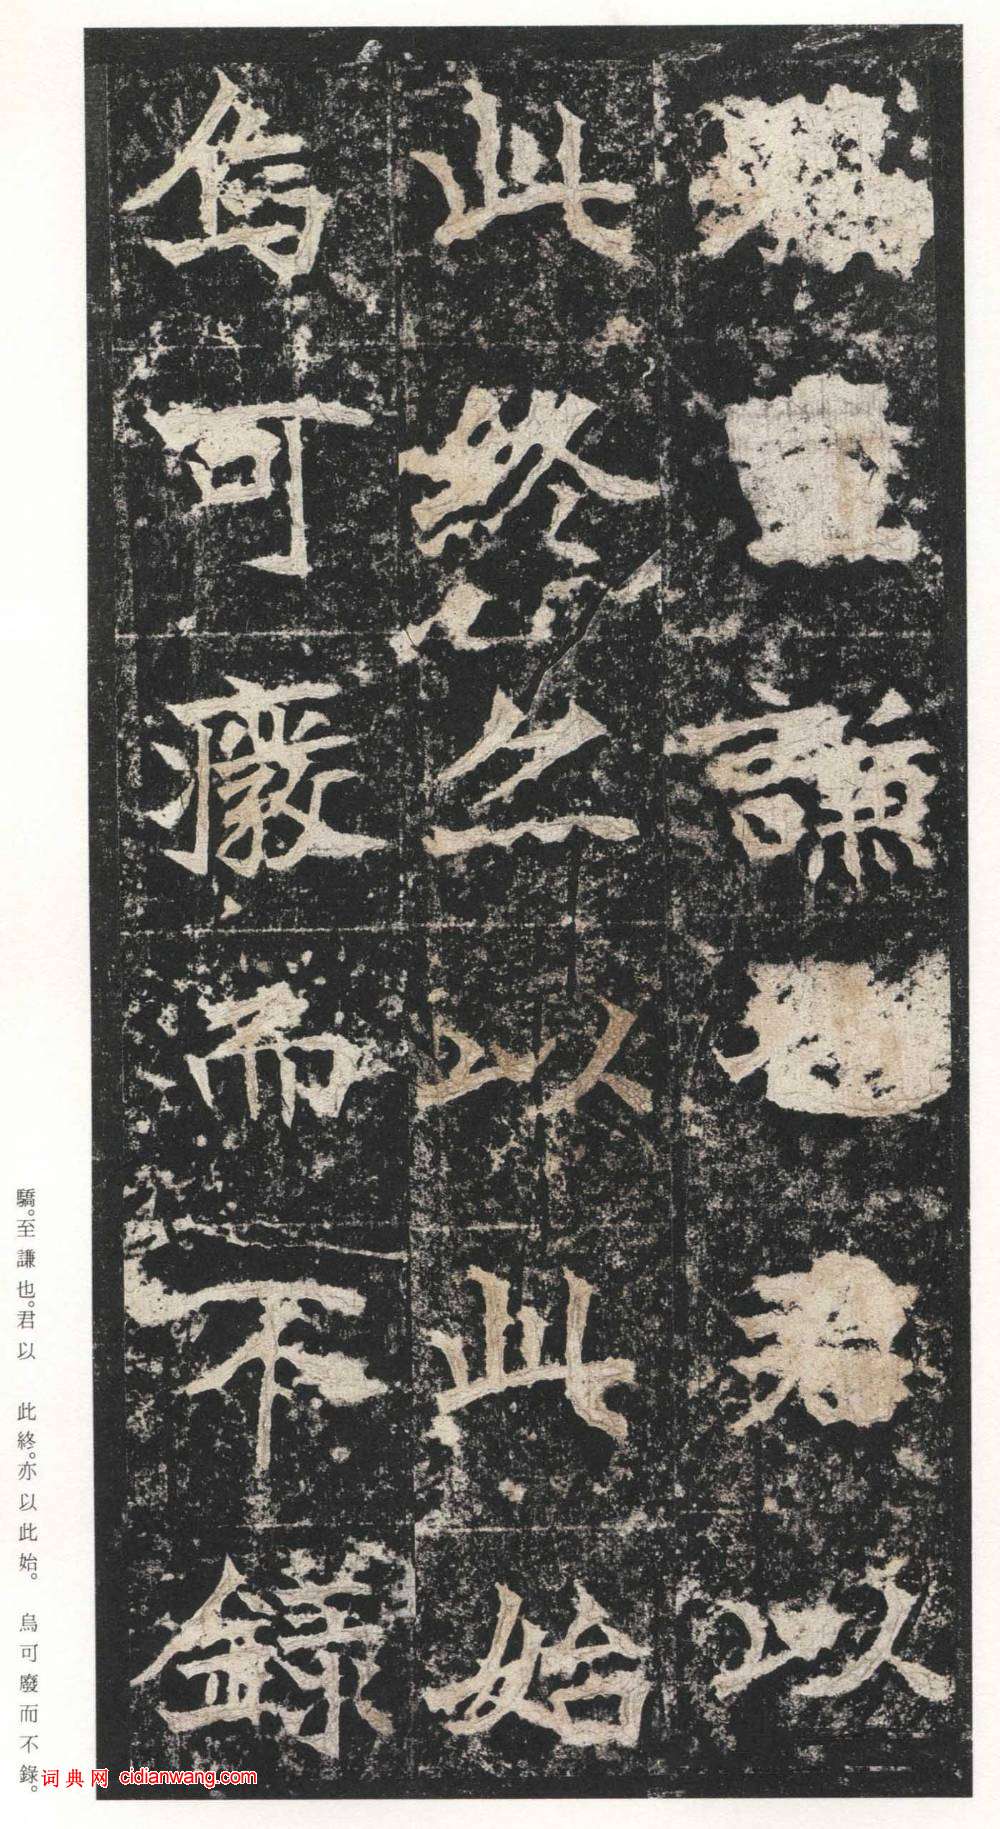 驕至謙也君以
此終亦以此始
烏可廢而不錄
驕。至謙也。君以　此終。亦以此始。　烏可廢而不錄。
词典网 cidianwang.com